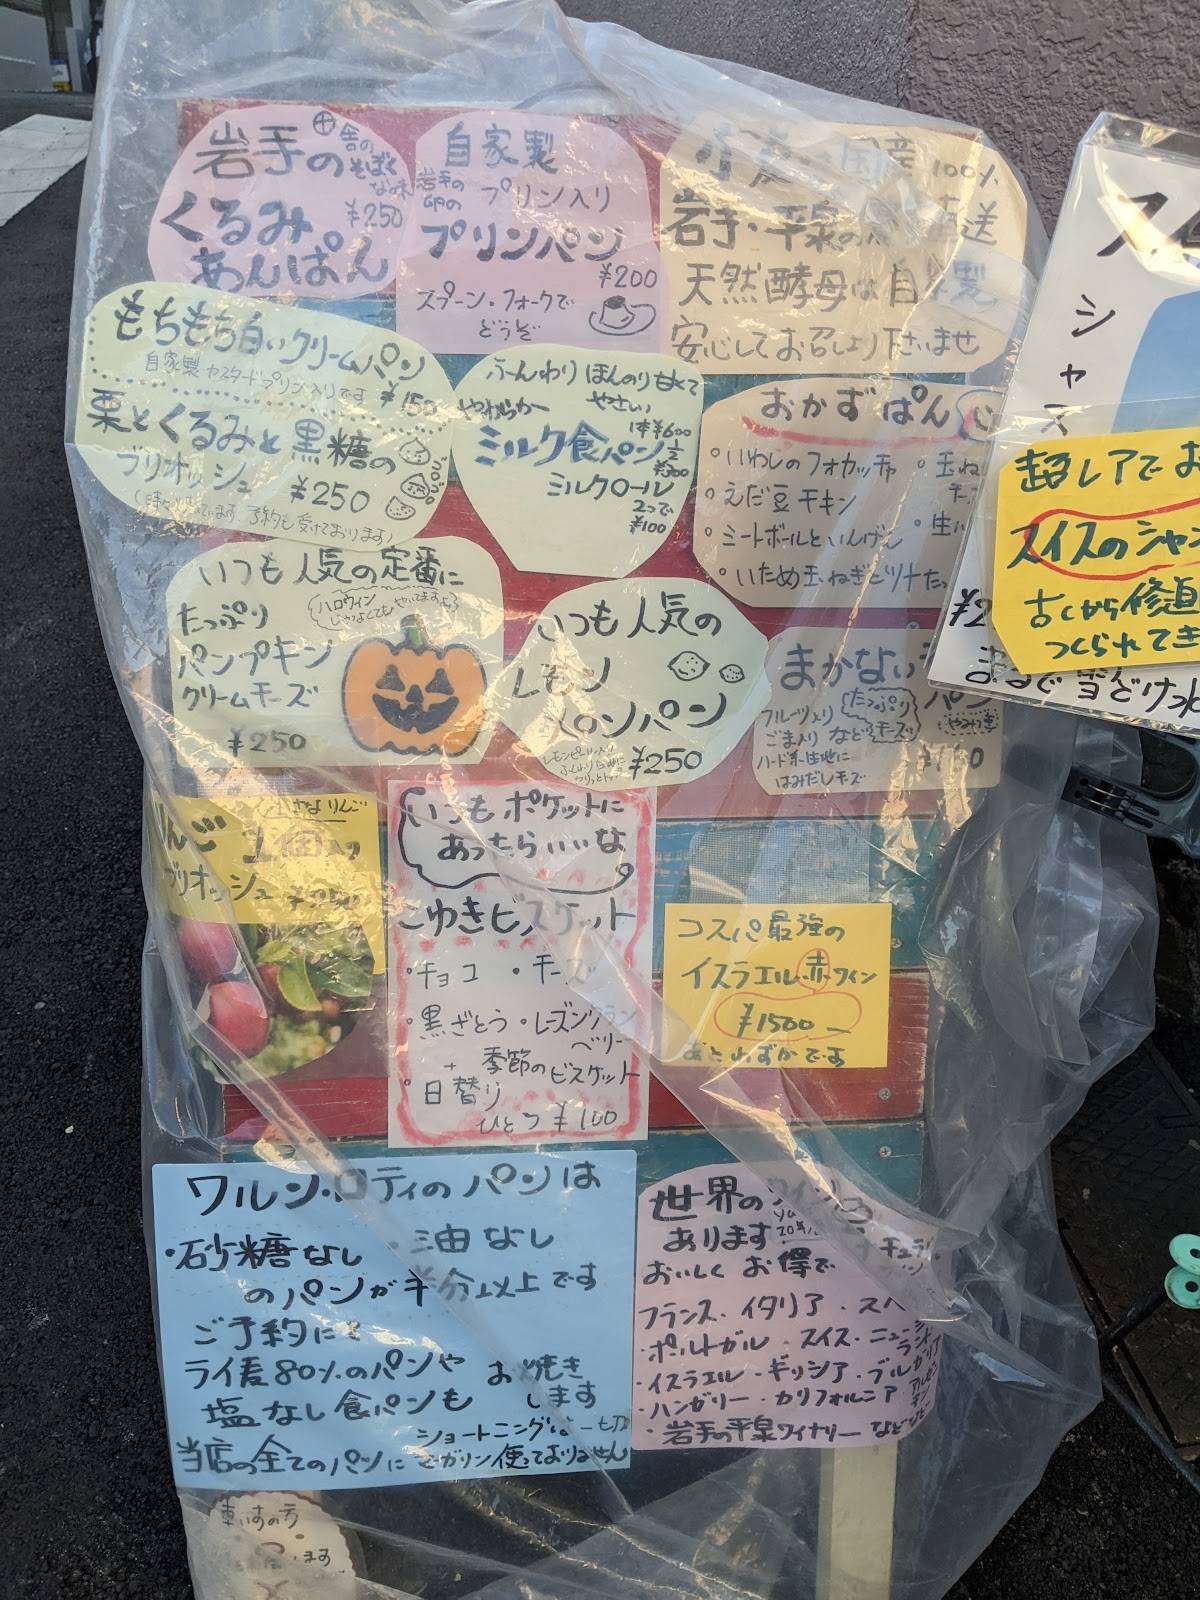 岩手の
田舎の
そぼく
な味
くるみ
¥250
あんぱん
自家製
岩手の
卵の
プリン入り
プリンパン
¥200
スプーン・フォークで
どうぞ
小麦 国産 100%
岩手・平泉の 直送
天然酵母は自家製
安心してお召し上り下さいませ
もちもち白いクリームパン
自家製カスタードプリン入りです ¥150
栗とくるみと黒糖の
ブリオッシュ ¥250
予約も受けております)
ふんわり ほんのり甘くて
やわらか やさしい
ミルク食パン
1本¥600
½ ¥300
ミルクロール
2つで
¥100
おかずぱん
・いわしのフォカッチャ
・えだ豆チキン
・ミートボールといんげん
・いため玉ねぎとツナ
・玉ね
いつも人気の定番に
ハロウィン
じゃなくてもやってますよ
たっぷり
パンプキン
クリームチーズ
¥250
いつも人気の
レモン
メロンパン
¥250
まかない
パン
たっぷり
チーズ
フルーツ入り
ごま入り など
ハード系生地に
はみだしチーズ
小さなりんご
りんご 1個入り
ブリオッシュ
¥250
いつもポケットに
あったらいいな
こゆきビスケット
・チョコ ・チーズ
・黒ざとう ・レーズンクラン
ベリー
+ 季節のビスケット
・日替り
ひとつ ¥100
コスパ最強の
イスラエル・赤ワイン
¥1500
あとわずかです
ワルン・ロティのパンは
・砂糖なし ・油なし
のパンが半分以上です
ご予約にて
ライ麦80%のパンや
塩なし食パンも
お焼き
します
ショートニングは一切
当店の全てのパンにマーガリン使っておりません
世界のワイン
あります
おいしく お得で
フランス・イタリア・スペ
・ポルトガル・スイス・ニュージ
ーランド
・イスラエル・ギリシア・ブルガリア
・ハンガリー・カリフォルニア
アルゼンチン
・岩手の平泉ワイナリー など
シャス
超レアでお
スイスのシャン
古くから修道
つくられてき
¥2
まるで雪どけ水
車いすの方